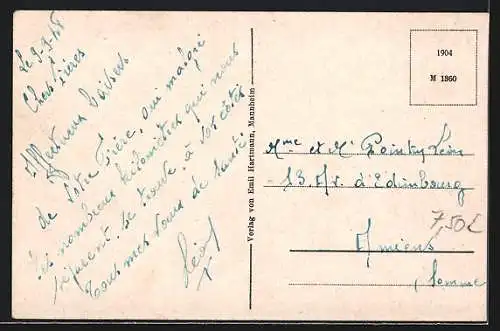 Le 9-9-48
Chers Frères
Affectueux Baisers
de Votre Frère, qui malgré
les nombreux kilomètres qui nous
séparent se trouve à vos côtés
Tous mes vœux de santé.
Verlag von Emil Hartmann, Mannheim
1904
M 1360
Mme et Mr Pointy Léon
13, Av. d'Edimbourg
7,50€
Amiens
Somme